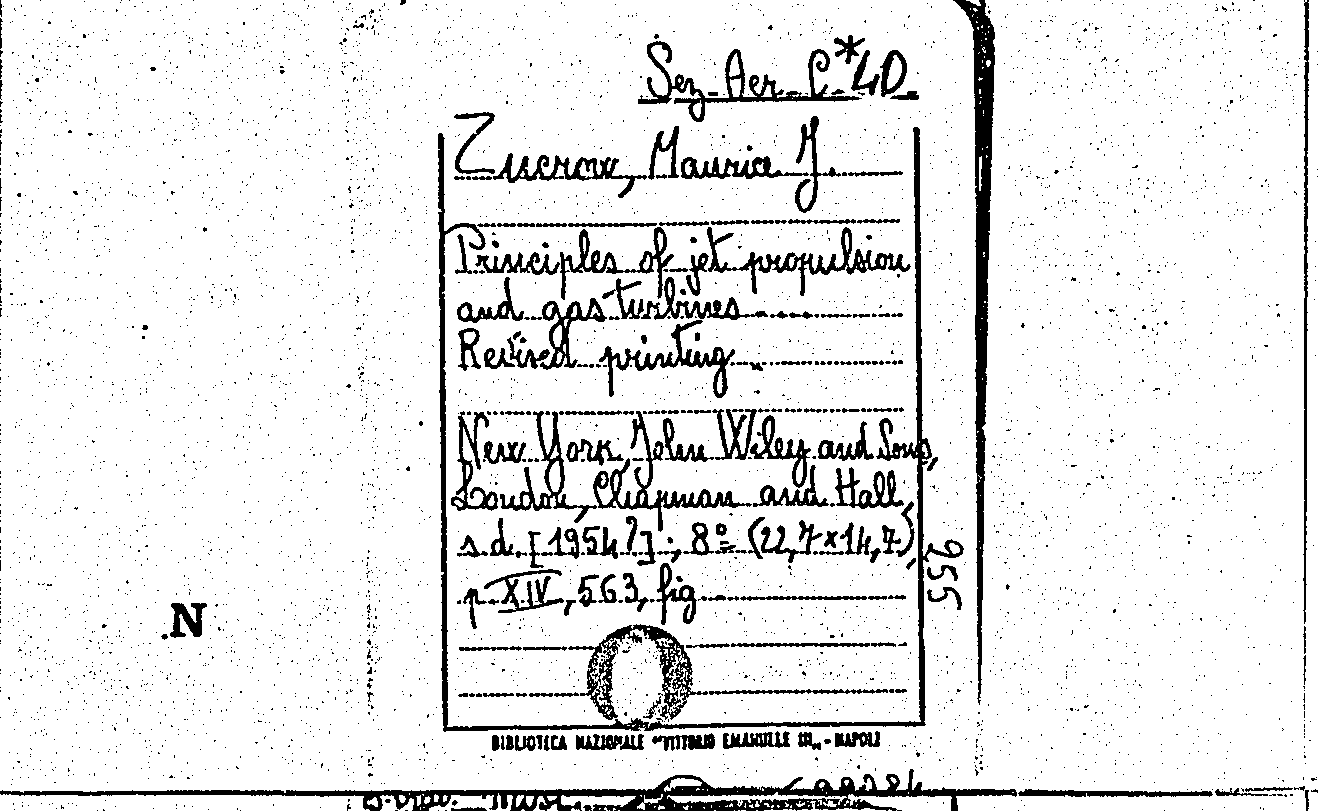 Sez. Aer. C*40
Zucrow, Maurice J.
Principles of jet propulsion
and gas turbines....
Revised printing.
New York, John Wiley and Sons,
London, Chapman and Hall,
s.d. [1954?]; 8º (22,7×14,7),
p. XIV, 563, fig
955
N
BIBLIOTECA NAZIONALE "VITTORIO EMANUELE III" - NAPOLI